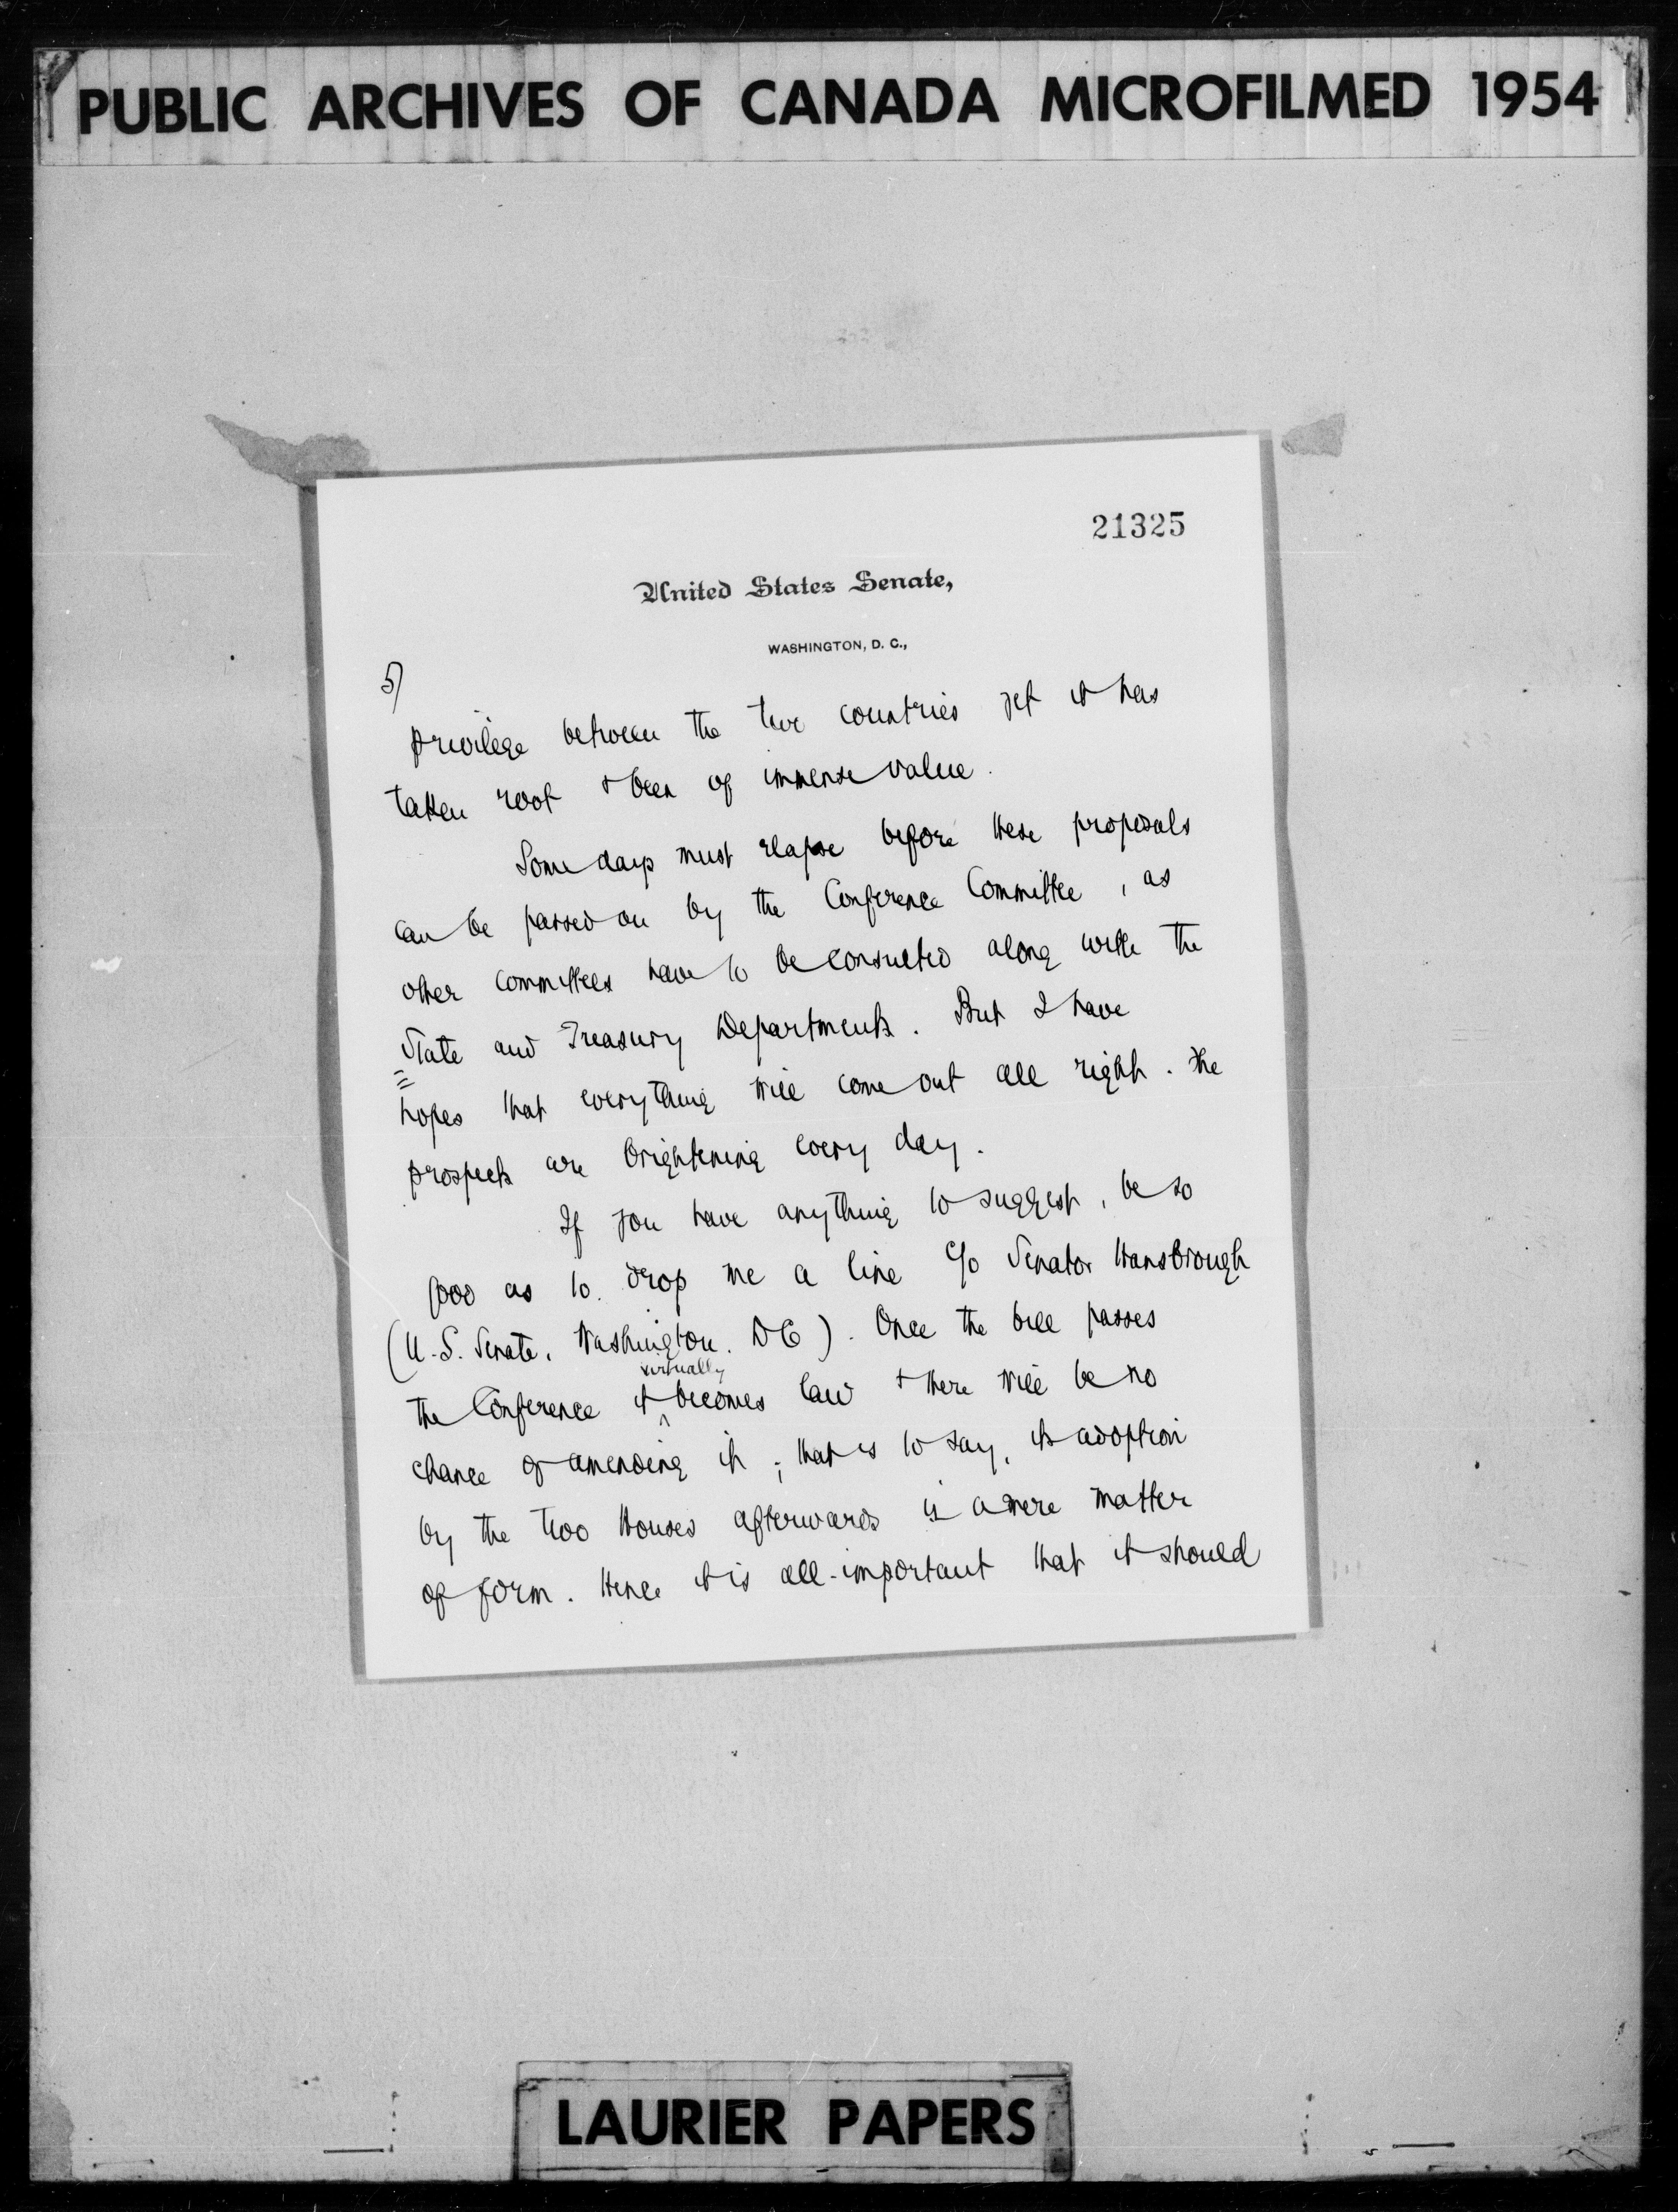 PUBLIC ARCHIVES OF CANADA MICROFILMED 1954
21325
United States Senate,
WASHINGTON, D. C.,
5)
privilege between the two countries yet it has
taken root + been of immense value.
Some days must elapse before these proposals
can be passed on by the Conference Committee, as
other committees have to be consulted along with the
State and Treasury Departments. But I have
hopes that everything will come out all right. The
prospects are brightening every day.
If you have anything to suggest, be so
good as to drop me a line c/o Senator Hansbrough
(U.S. Senate, Washington. DC). Once the bill passes
virtually
the Conference it ^ becomes law + there will be no
chance of amending it; that is to say, its adoption
by the two Houses afterwards is a mere matter
of form. Hence it is all-important that it should
LAURIER PAPERS